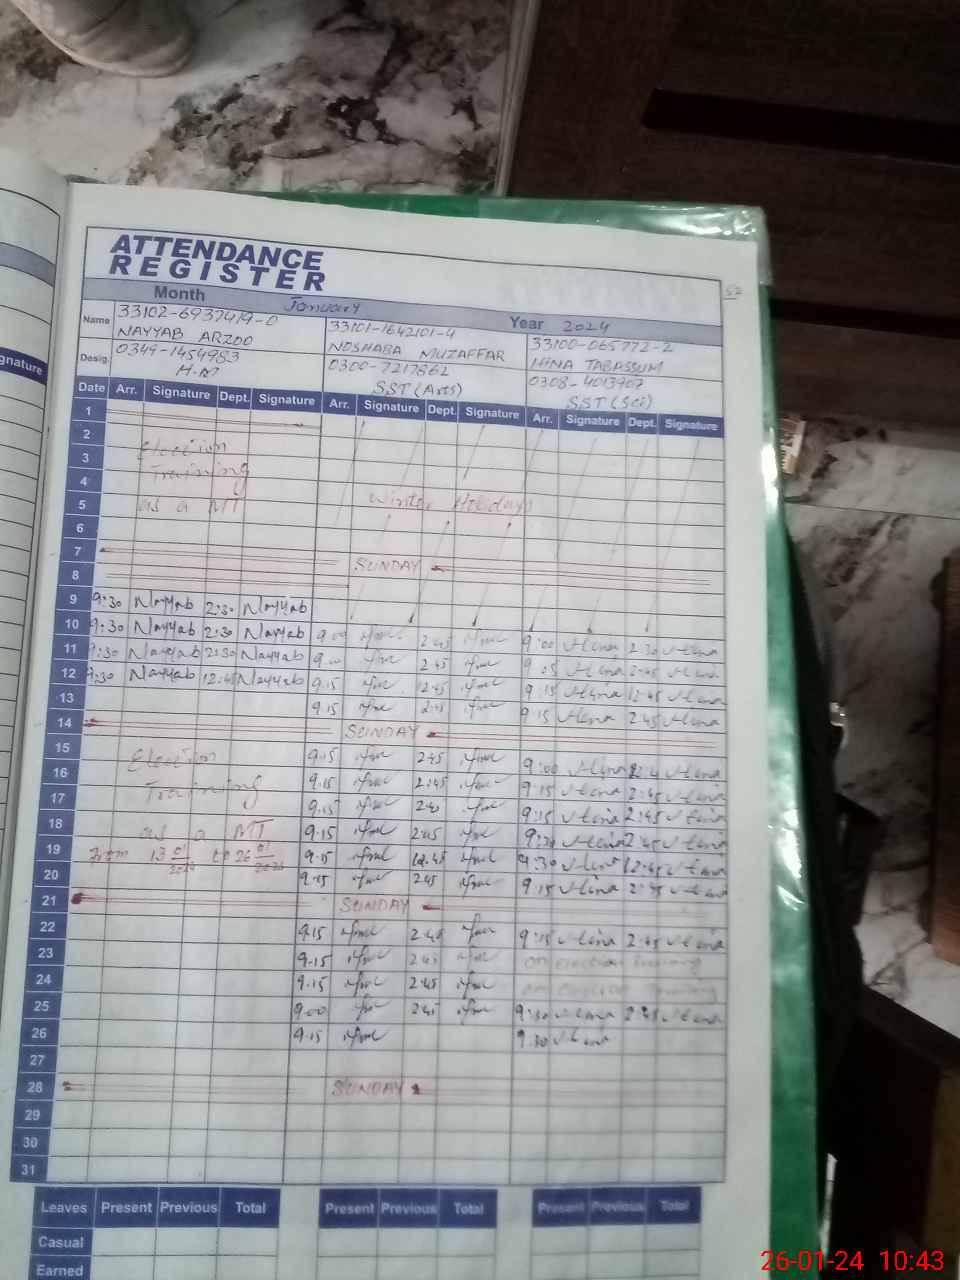 ATTENDANCE
REGISTER
52
Month January Year 2024
Name 33102-6937419-0 33101-1642101-4 33100-065772-2
NAYYAB ARZOO NOSHABA MUZAFFAR HINA TABASSUM
Desig. 0349-1454983 0300-7217862 0308-4013907
H.M SST (Arts) SST (Sci)
gnature
Date Arr. Signature Dept. Signature Arr. Signature Dept. Signature Arr. Signature Dept. Signature
1
2 Election
3 Training
4
5 as a MT Winter Holidays
6
7 SUNDAY
8
9 9:30 Nayyab 2:30 Nayyab
10 9:30 Nayyab 2:30 Nayyab 9:00 2:45 9:00 Hina 2:30 Hina
11 9:30 Nayyab 2:30 Nayyab 9:00 2:45 Hina 2:45 Hina
12 9:30 Nayyab 12:45 Nayyab 9:15 12:45 9:15 Hina 12:45 Hina
13 9:15 2:45 9:15 Hina 2:45 Hina
14 SUNDAY
15 Election 9:15 2:45 9:00 Hina Hina
16 Training 9:15 2:45 9:15 Hina 2:45 Hina
17 9:15 2:45 9:15 Hina 2:45 Hina
18 as a MT 9:15 2:45 9:30 Hina 2:45 Hina
19 From 13 01/2024 to 26 01/2024 9:15 12:45 9:30 Hina 12:45 Hina
20 9:15 2:45 9:15 Hina 2:45 Hina
21 SUNDAY
22 9:15 2:45 9:15 Hina 2:45 Hina
23 9:15 2:45 on election Training
24 9:15 2:45 on Training
25 9:00 2:45 9:30 Hina 2:45 Hina
26 9:15 9:30 Hina
27
28 SUNDAY
29
30
31
Leaves Present Previous Total Present Previous Total Present Previous Total
Casual
Earned
26-01-24 10:43